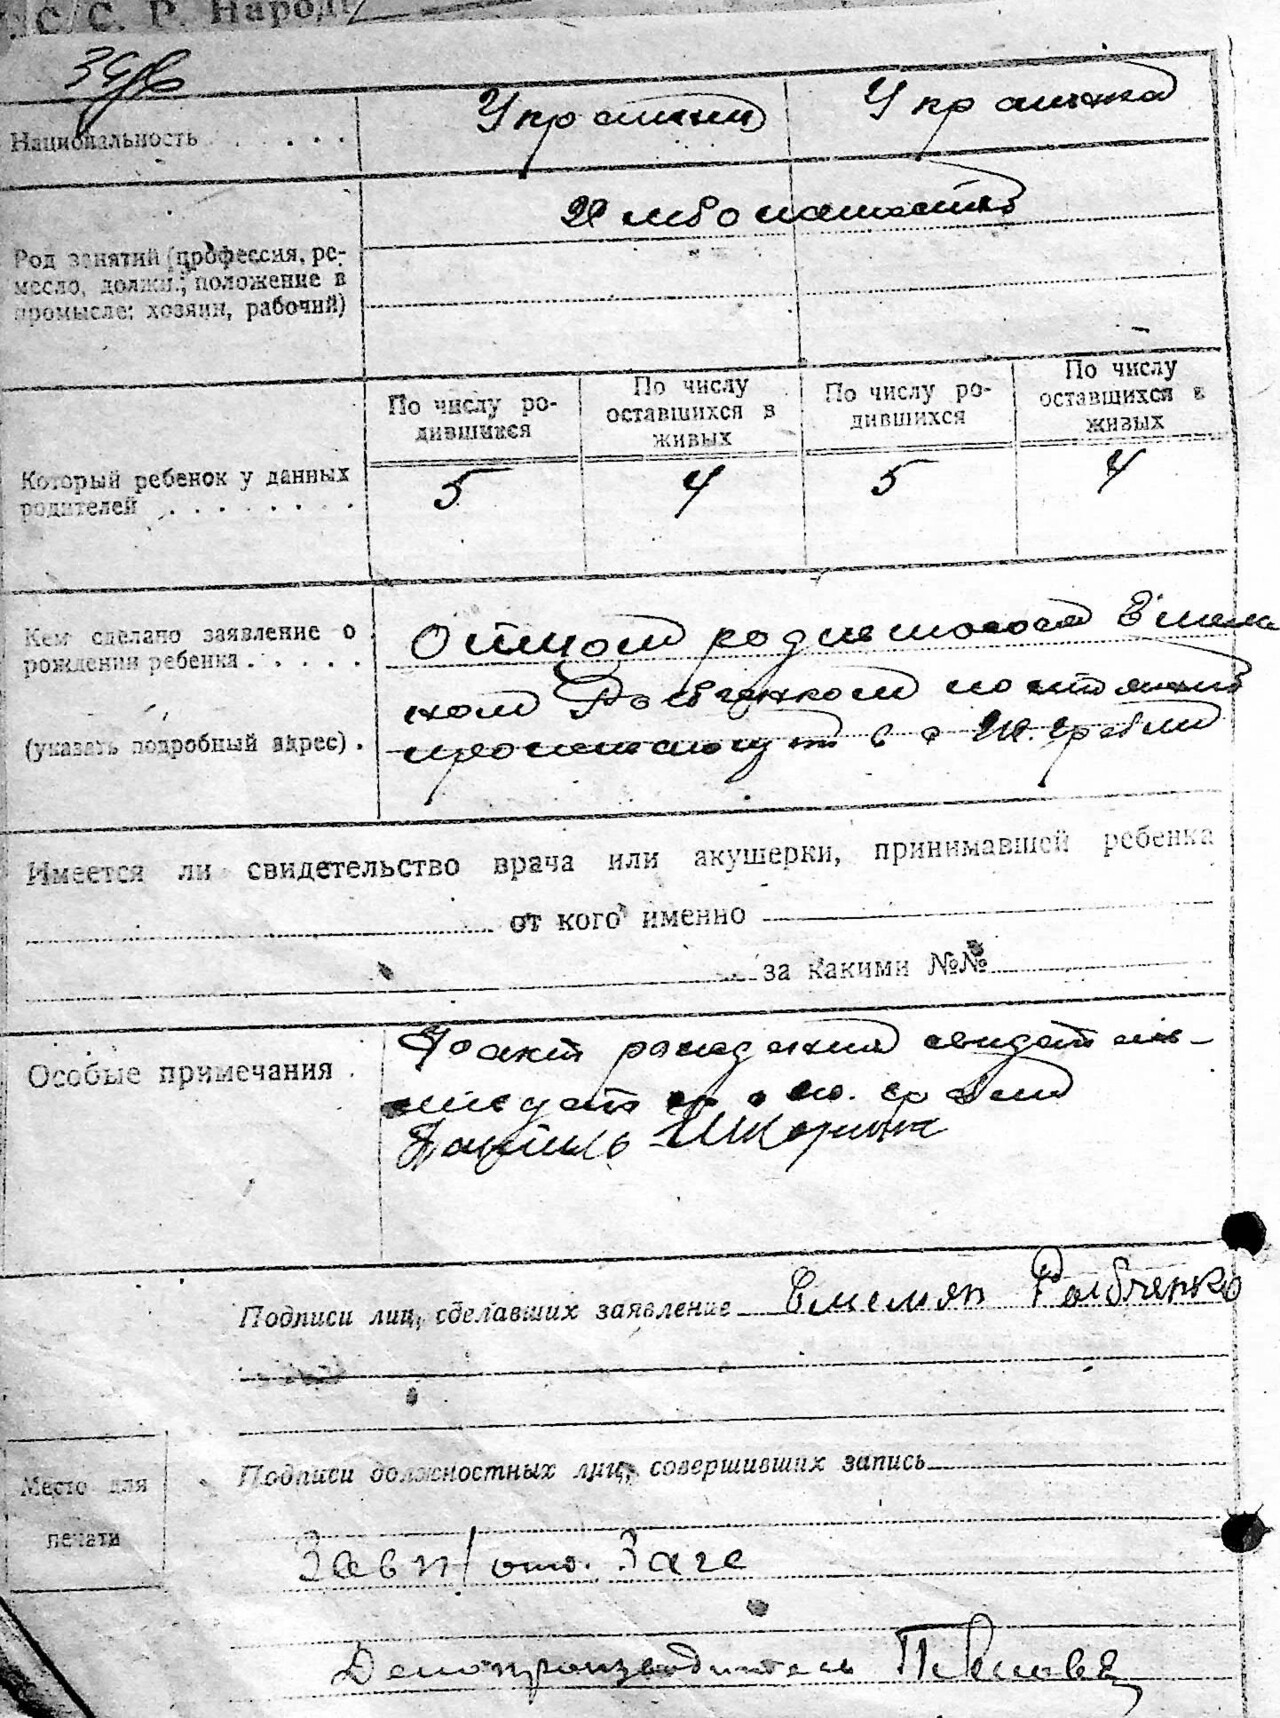 С. С. Р. Народ
Национальность Украинец Украинка
Хлебопашество
Род занятий (профессия, ре-
месло, должн.; положение в
промысле: хозяин, рабочий)
По числу ро-
дившихся
По числу
оставшихся в
живых
По числу ро-
дившихся
По числу
оставшихся в
живых
Который ребенок у данных
родителей
5 4 5 4
Кем сделано заявление о
рождении ребенка
(указать подробный адрес)
Отцом родившогося Емелья
ном постоянно
в с
Имеется ли свидетельство врача или акушерки, принимавшей ребенка
от кого именно
за какими №№
Особые примечания
Факт рождения свидетель-
Подписи лиц, сделавших заявление Емельян
Подписи должностных лиц, совершивших запись
Место для
печати
Зав Загс
Делопроизводитель